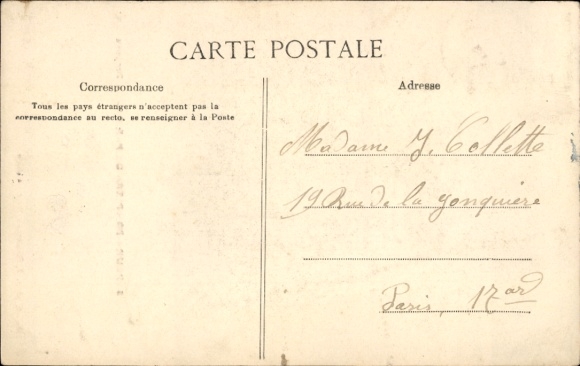 CARTE POSTALE
Correspondance
Tous les pays étrangers n'acceptent pas la
correspondance au recto, se renseigner à la Poste
Adresse
Madame J. Collette
19 Rue de la Gonquière
Paris, 17 ard